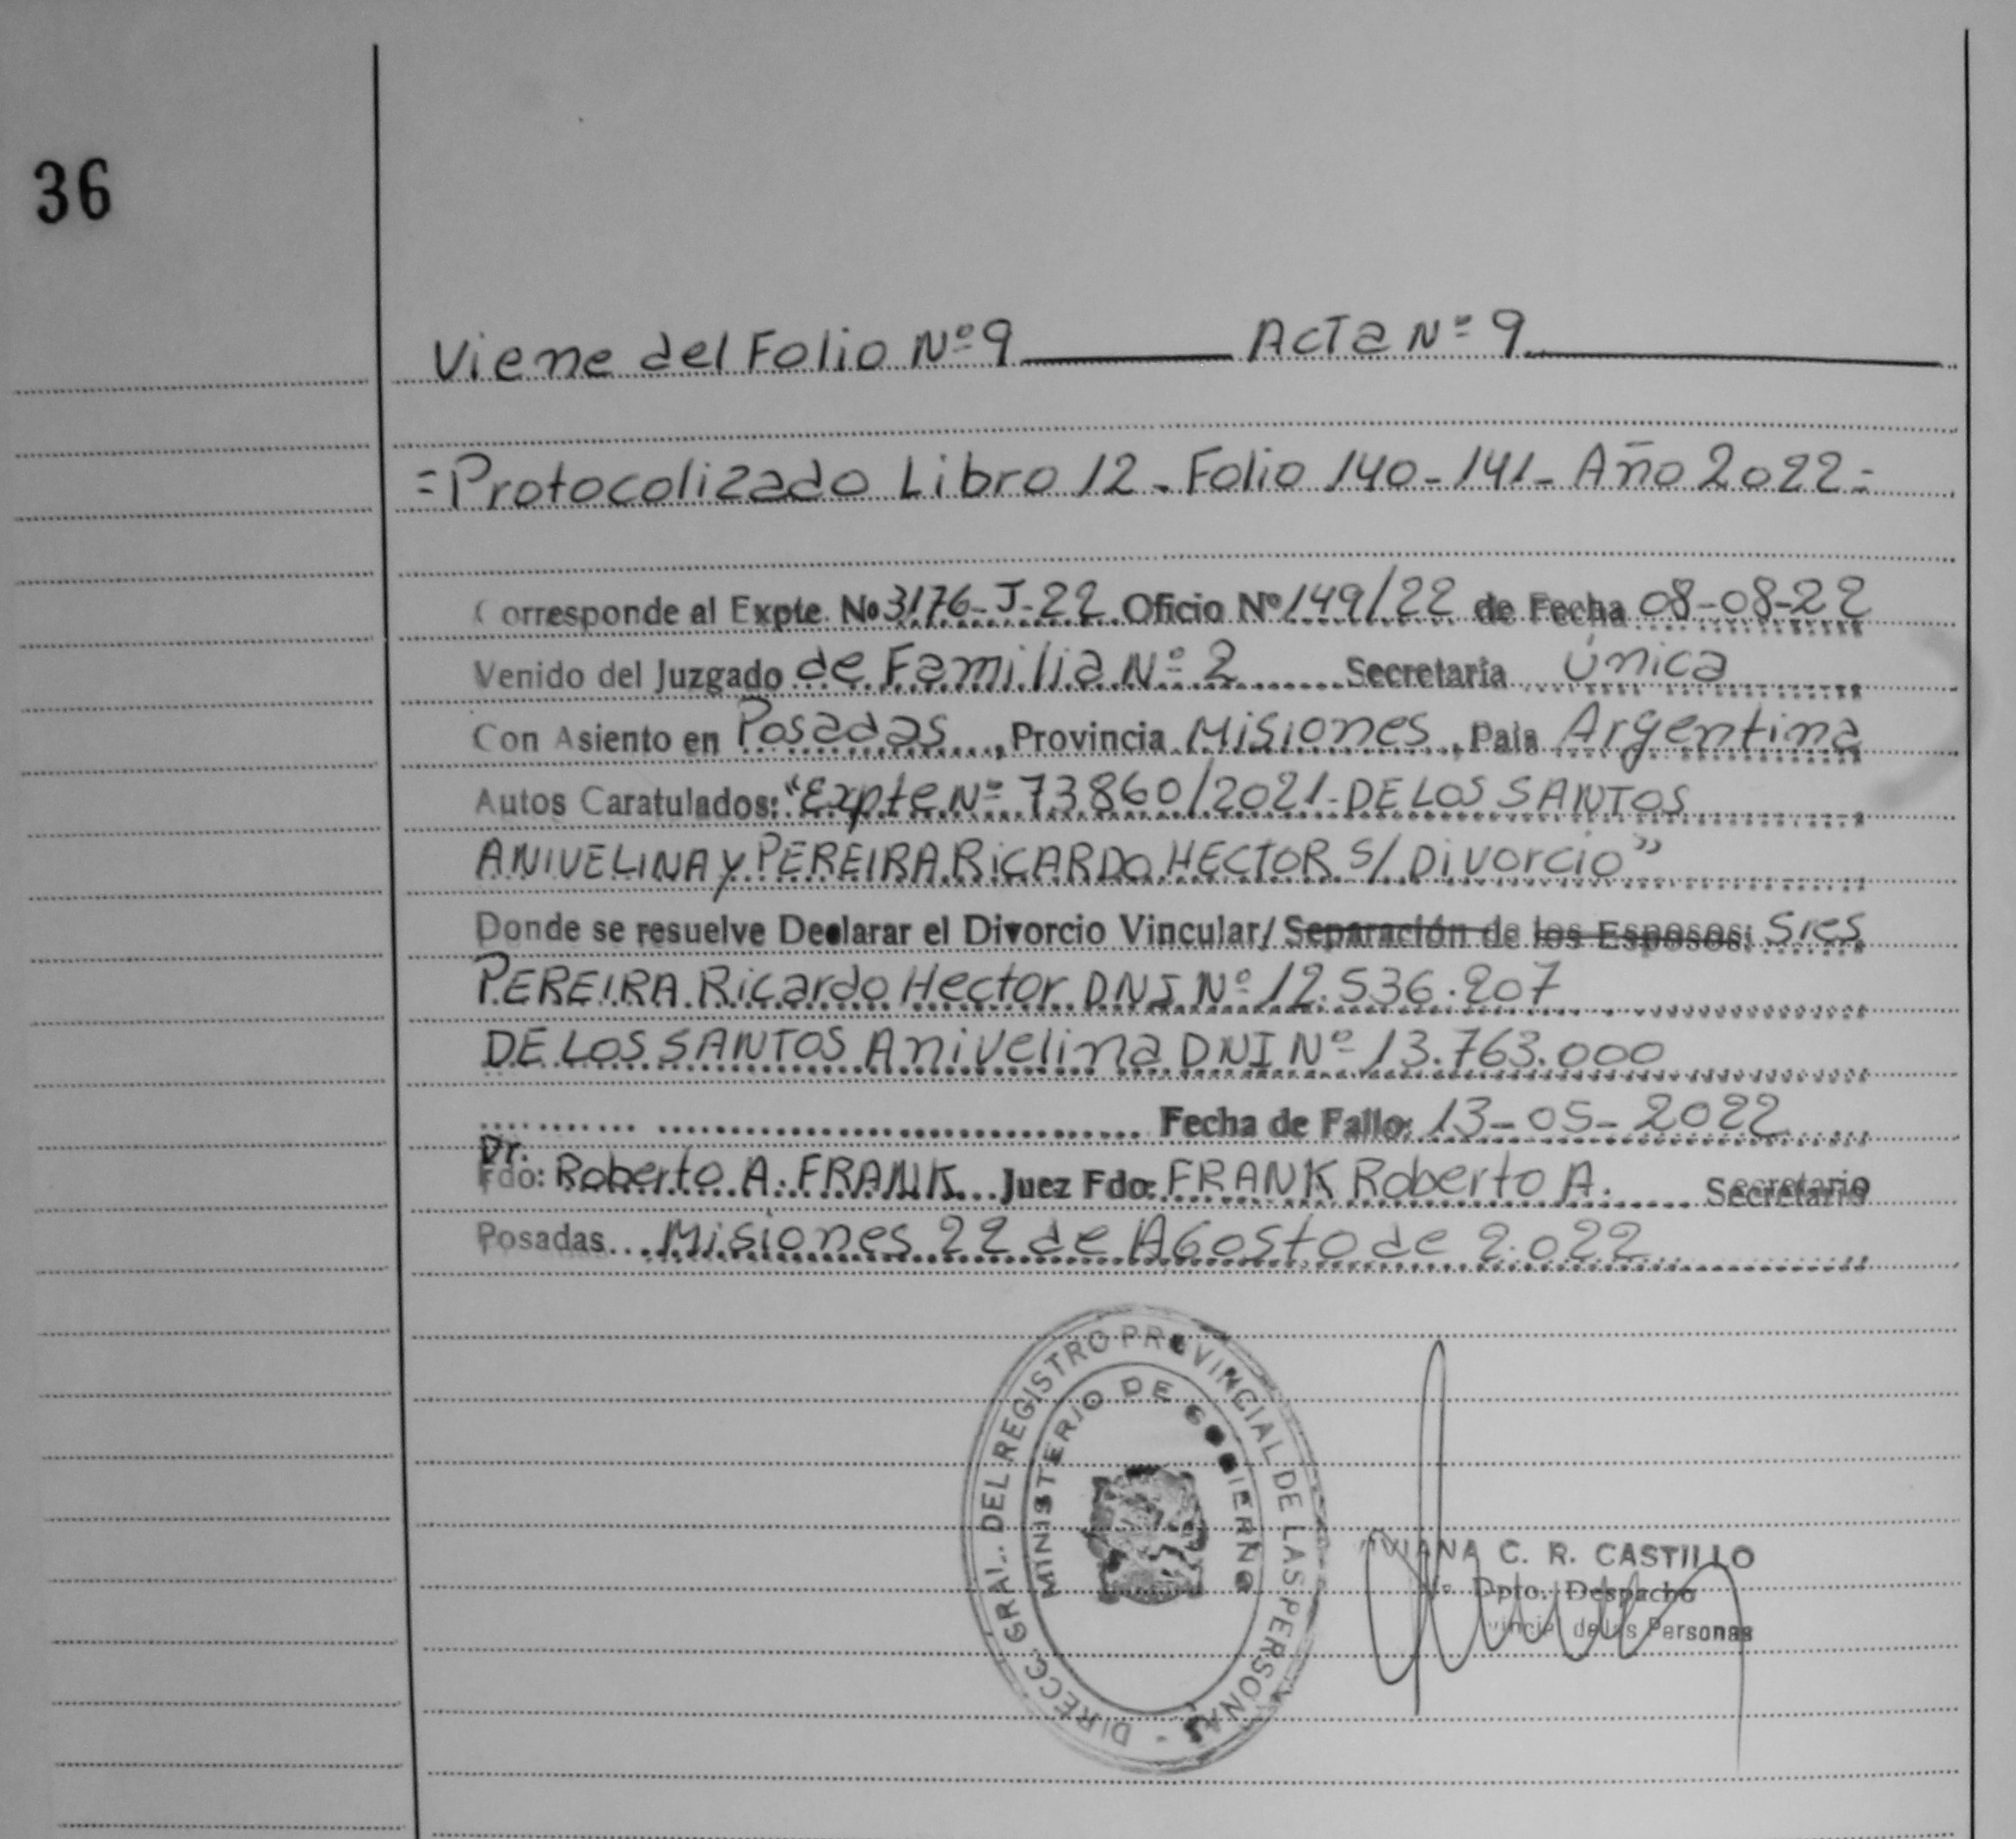 36
Viene del Folio Nº 9 Acta Nº 9
=Protocolizado Libro 12. Folio 140-141- Año 2022=
Corresponde al Expte. Nº 3176-J-22 Oficio Nº 149/22 de Fecha 08-08-22
Venido del Juzgado de Familia Nº 2 Secretaría Única
Con Asiento en Posadas, Provincia Misiones, País Argentina
Autos Caratulados: "Expte Nº 73860/2021-DE LOS SANTOS
ANIVELINA Y PEREIRA RICARDO HECTOR S/ Divorcio"
Donde se resuelve Declarar el Divorcio Vincular/ Separación de los Esposos: Sres
PEREIRA Ricardo Hector DNI Nº 12.536.207
DE LOS SANTOS Anivelina DNI Nº 13.763.000
Fecha de Fallo: 13-05-2022
Dr.
Fdo: Roberto A. FRANK Juez Fdo: FRANK Roberto A. Secretario
Posadas Misiones 22 de Agosto de 2.022
DIRECC. GRAL. DEL REGISTRO PROVINCIAL DE LAS PERSONAS -
MINISTERIO DE GOBIERNO
C. R. CASTILLO
Dpto. Despacho
de las Personas